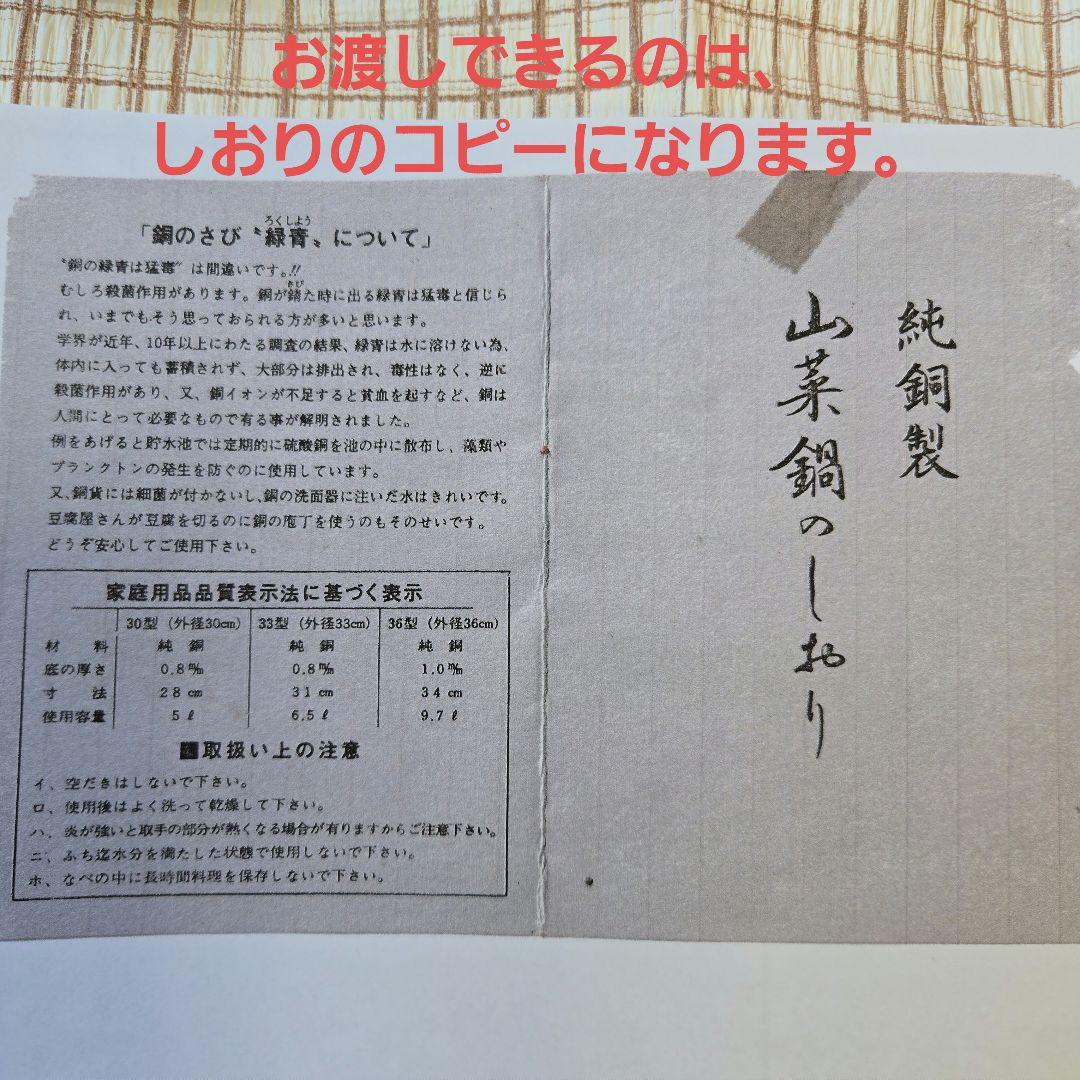 お渡しできるのは、
しおりのコピーになります。
純銅製
山菜鍋のしおり
ろくしよう
「銅のさび〝緑青〟について」
〝銅の緑青は猛毒〟は間違いです。!!
さび
むしろ殺菌作用があります。銅が錆た時に出る緑青は猛毒と信じら
れ、いまでもそう思っておられる方が多いと思います。
学界が近年、10年以上にわたる調査の結果、緑青は水に溶けない為、
体内に入っても蓄積されず、大部分は排出され、毒性はなく、逆に
殺菌作用があり、又、銅イオンが不足すると貧血を起すなど、銅は
人間にとって必要なもので有る事が解明されました。
例をあげると貯水池では定期的に硫酸銅を池の中に散布し、藻類や
プランクトンの発生を防ぐのに使用しています。
又、銅貨には細菌が付かないし、銅の洗面器に注いだ水はきれいです。
豆腐屋さんが豆腐を切るのに銅の庖丁を使うのもそのせいです。
どうぞ安心してご使用下さい。
家庭用品品質表示法に基づく表示
30型(外径30cm) 33型(外径33cm) 36型(外径36cm)
材料 純銅 純銅 純銅
底の厚さ 0.8㎜ 0.8㎜ 1.0㎜
寸法 28cm 31cm 34cm
使用容量 5ℓ 6.5ℓ 9.7ℓ
取扱い上の注意
イ、空だきはしないで下さい。
ロ、使用後はよく洗って乾燥して下さい。
ハ、炎が強いと取手の部分が熱くなる場合が有りますからご注意下さい。
ニ、ふち迄水分を満たした状態で使用しないで下さい。
ホ、なべの中に長時間料理を保存しないで下さい。